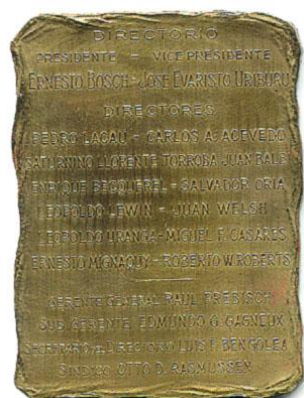 DIRECTORIO
PRESIDENTE - VICE PRESIDENTE
ERNESTO BOSCH - JOSE EVARISTO URIBURU
DIRECTORES
PEDRO LAGAU - CARLOS A. ACEVEDO
SATURNINO LLORENTE TORROBA JUAN
ENRIQUE - SALVADOR ORIA
LEOPOLDO LEWIN - JUAN WELSH
LEOPOLDO URANGA - MIGUEL F. CASARES
ERNESTO MIGNAQUY - ROBERTO W. ROBERTS
GERENTE GENERAL RAUL PREBISCH
SUB GERENTE EDMUNDO G. GAGNEUX
SECRETARIO DEL DIRECTORIO LUIS BENGOLEA
SINDICO OTTO D. RASMUSSEN